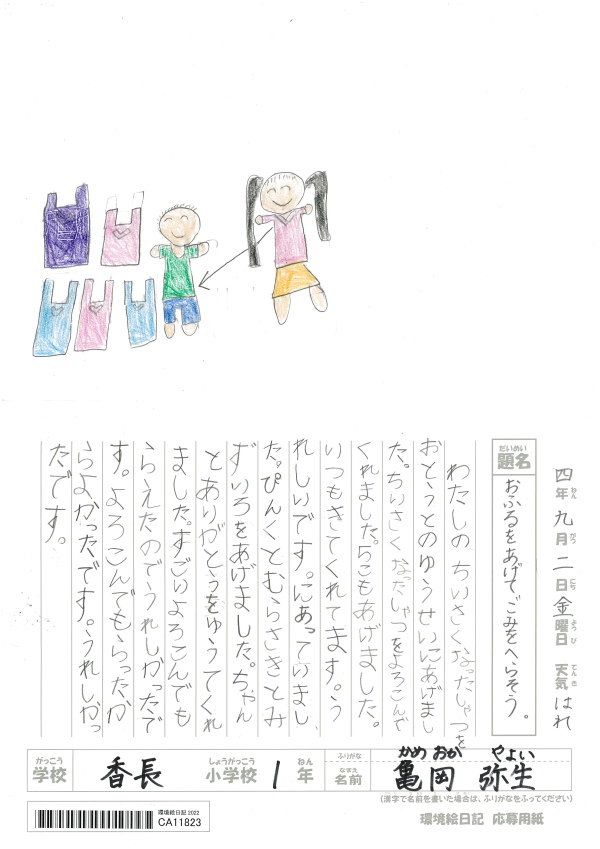 四年九月二日金曜日 天気 はれ
ねん がつ にち ようび てんき
だいめい
題名
おふるをあげてごみをへらそう。
わたしの ちいさくなったしゃつを
おとうとのゆうせいにあげまし
た。ちいさくなったしゃつをよろこんで
くれました。5こもあげました。
いつもきてくれてます。う
れしいです。にあっていまし
た。ぴんくとむらさきとみ
ずいろをあげました。ちゃん
とありがとうをゆうてくれ
ました。すごいよろこんでも
らえたのでうれしかったで
す。よろこんでもらったか
らよかったです。うれしかっ
たです。
がっこう
学校
香長
しょうがっこう
小学校
1
ねん
年
ふりがな
かめ おか やよい
なまえ
名前
亀岡 弥生
(漢字で名前を書いた場合は、ふりがなをふってください)
環境絵日記 2022
CA11823
環境絵日記 応募用紙